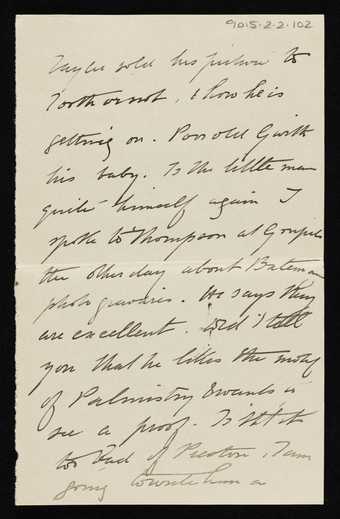 90.5.2.2.102
sold his picture to
Tooth or not, & how he is
getting on. Poor old Garth
his baby. Is the little man
quite himself again I
spoke to Thompson at Goupils
the other day about Bateman
photogravures. He says they
are excellent. Did I tell
you that he likes the motif
of Palmistry & wants to
see a proof. Isn't it
too bad of Preston, I am
going to write him a